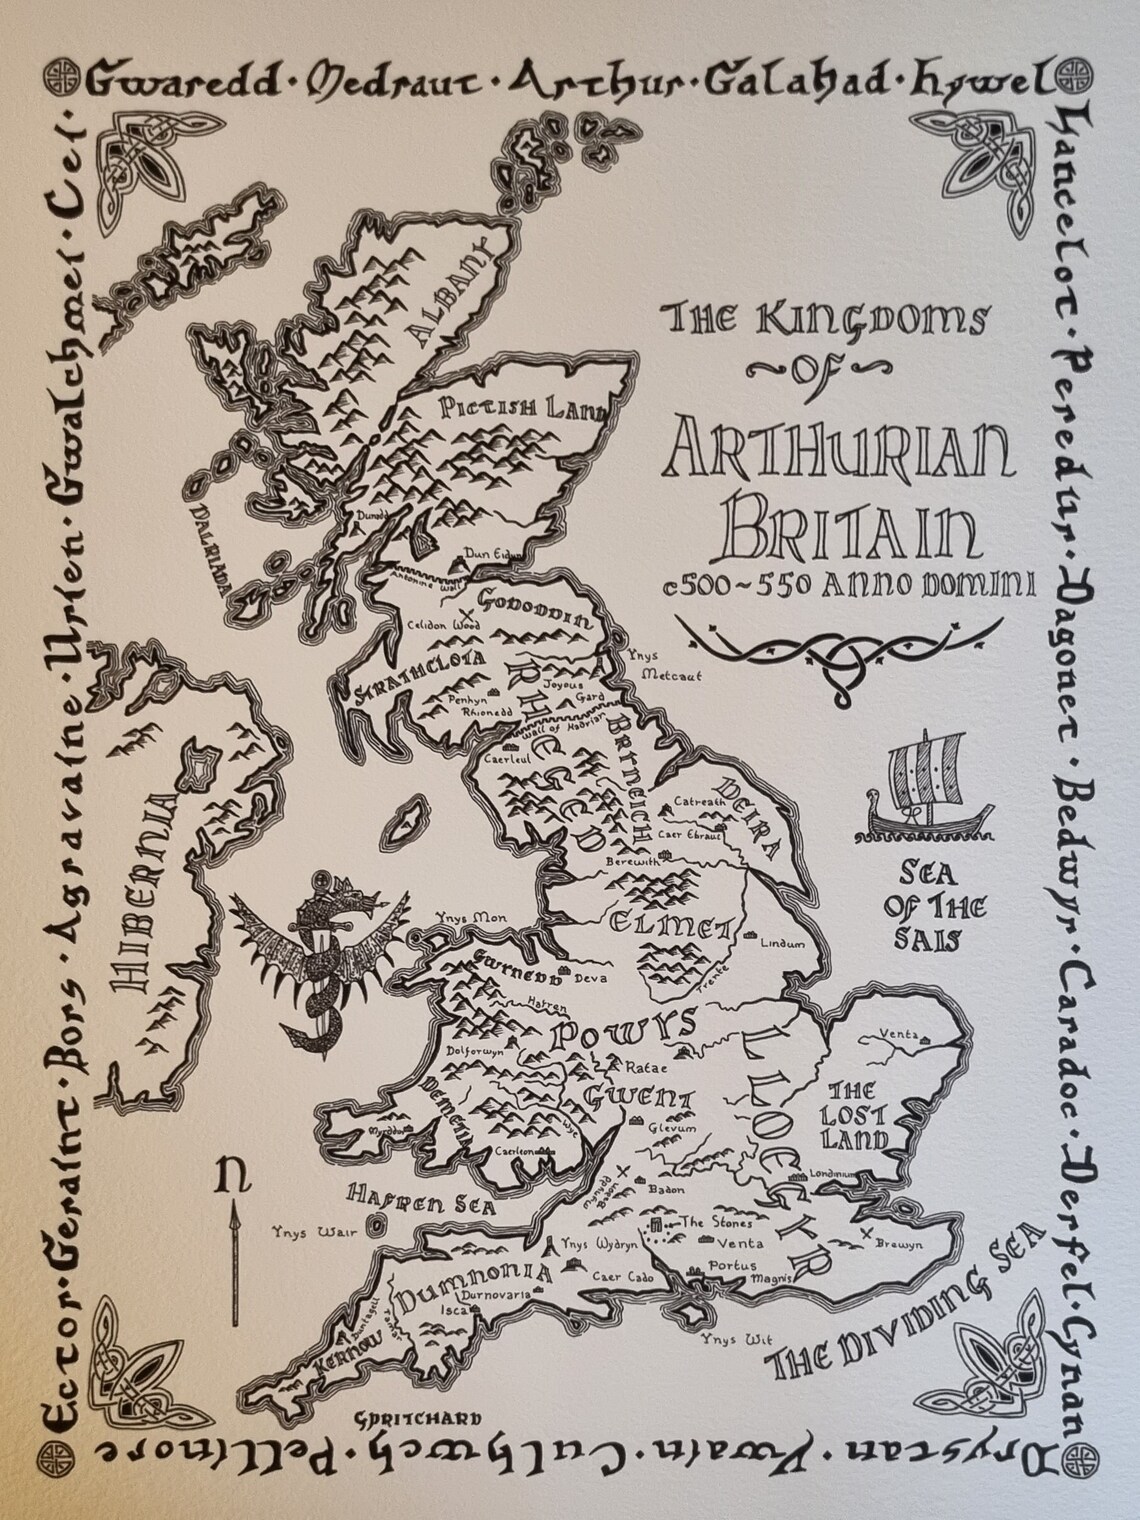 Gwaredd · Medraut · Arthur · Galahad · Hywel
Lancelot · Peredur · Dagonet · Bedwyr · Caradoc · Derfel · Cynan
Drystan · Ywain · Culhwch · Pellinore
Ector · Geraint · Bors · Agravaine · Urien · Gwalchmei · Cei ·
THE KINGDOMS
~OF~
ARTHURIAN
BRITAIN
c500~550 ANNO DOMINI
ALBANY
PICTISH LAND
DALRIADA
Dunadd
Dun Eidyn
Antonine Wall
GODODDIN
Celidon Wood
STRATHCLOTA
Ynys
Metcaut
Penhyn
Rhionedd
Joyous
Gard
RHEGED
Wall of Hadrian
BRYNEICH
Caerleul
DEIRA
Catreath
Caer Ebrauc
Berewith
HIBERNIA
SEA
OF THE
SAIS
ELMET
Lindum
Trente
Ynys Mon
GWYNEDD
Deva
Hafren
POWYS
Dolforwyn
Ratae
GWENT
DEMETIA
Myrddin
Wye
Glevum
Caerleon
LLOEGYR
Venta
THE
LOST
LAND
Londinium
N
HAFREN SEA
Ynys Wair
Mynydd
Badon
Badon
The Stones
Ynys Wydryn
Venta
Brewyn
Caer Cado
Portus
Magnis
DUMNONIA
Durnovaria
Isca
Tamar
Duntagell
KERNOW
Ynys Wit
THE DIVIDING SEA
GPRITCHARD